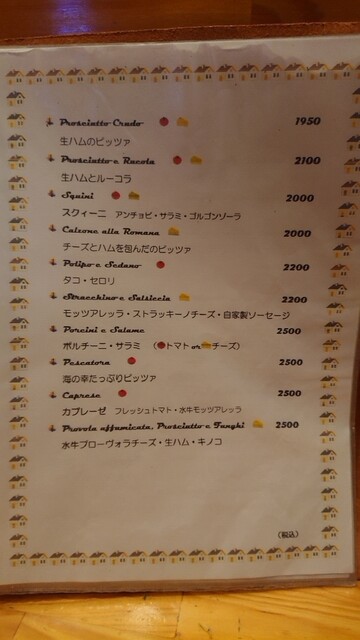 Prosciutto Crudo 1950
生ハムのピッツァ
Prosciutto e Rucola 2100
生ハムとルーコラ
Squini 2000
スクィーニ アンチョビ・サラミ・ゴルゴンゾーラ
Calzone alla Romana 2000
チーズとハムを包んだのピッツァ
Polipo e Sedano 2200
タコ・セロリ
Stracchino e Salsiccia 2200
モッツアレッラ・ストラッキーノチーズ・自家製ソーセージ
Porcini e Salame 2500
ポルチーニ・サラミ (トマト or チーズ)
Pescatora 2500
海の幸たっぷりピッツァ
Caprese 2500
カプレーゼ フレッシュトマト・水牛モッツアレッラ
Provola affumicata, Prosciutto e Funghi 2500
水牛プローヴォラチーズ・生ハム・キノコ
(税込)